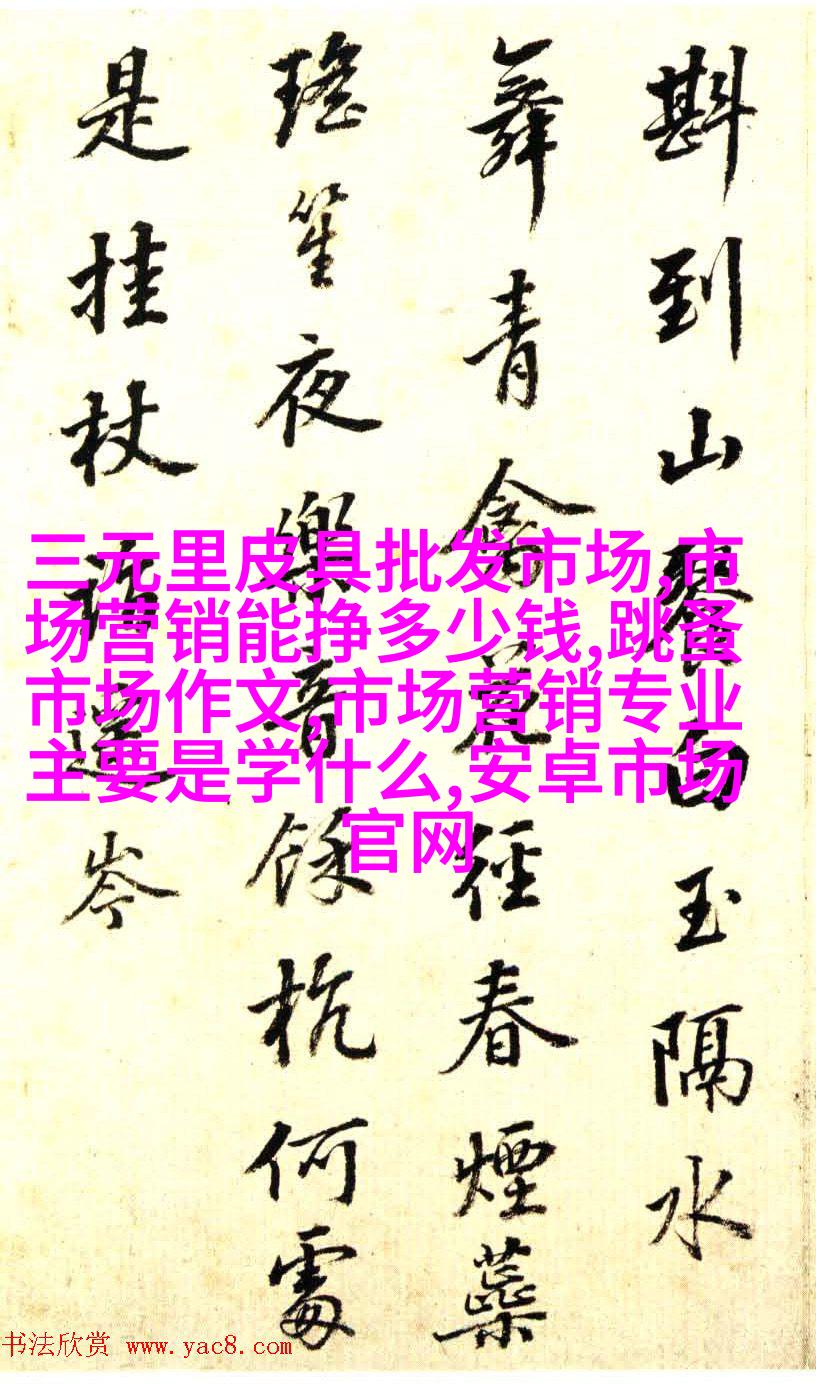 斟到山餐白玉隔水
舞青禽茗径春煙蘂
瑤笙夜樂音餘杭何處
是挂杖話遥岑
三元里皮具批发市场,市
场营销能挣多少钱,跳蚤
市场作文,市场营销专业
主要是学什么,安卓市场
官网
书法欣赏 www.yac8.com